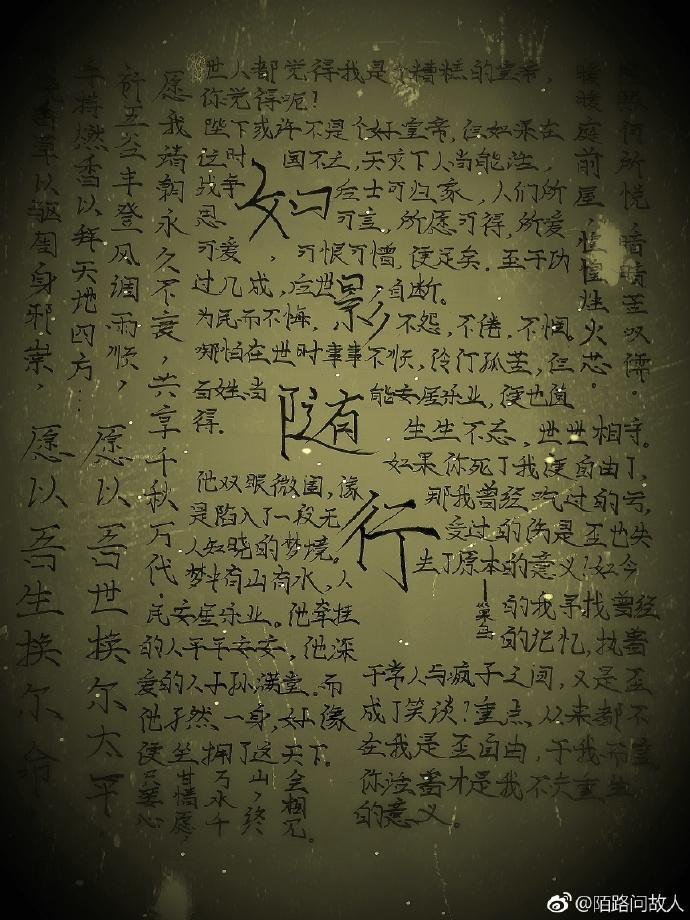 世人都觉得我是个糟糕的皇帝,
你觉得呢?
陛下或许不是个好皇帝,但如果在
位时 国不亡,天灾下人尚能活,
战争 后士可归家,人们所
思 可言,所愿可得,所爱
可爱, 可恨可憎,便足矣.至于功
过几成,后世 自断。
为民而不悔, 不怨,不倦,不惘。
哪怕在世时事事不顺,伶仃孤苦,但
百姓尚 能安居乐业,便也值
得.
如影随行
生生不忘,世世相守。
如果你死了我便自由了,
那我曾经吃过的亏,
受过的伤是否也失
去了原本的意义?如今
的我寻找曾经
的记忆,执着
于常人与疯子之间,又是否
成了笑谈?重点从来都不
在我是否自由,于我而言,
你活着才是我不失重生
的意义。
他双眼微阖,像
是陷入了一段无
人知晓的梦境。
梦中有山有水,人
民安居乐业。他牵挂
的人平平安安,他深
爱的人子孙满堂.而
他孑然一身,好像
便坐拥了这天下。
只要心
甘情愿,
万水千
山,终
会相见。
暖暖庭前屋,惶惶灶火芯。
愿我靖朝永久不衰,共享千秋万代.
祈五谷丰登风调雨顺,
手持燃香以拜天地四方…
草以驱周身邪祟,
愿以吾世换尔太平
愿以吾生换尔命
@陌路问故人